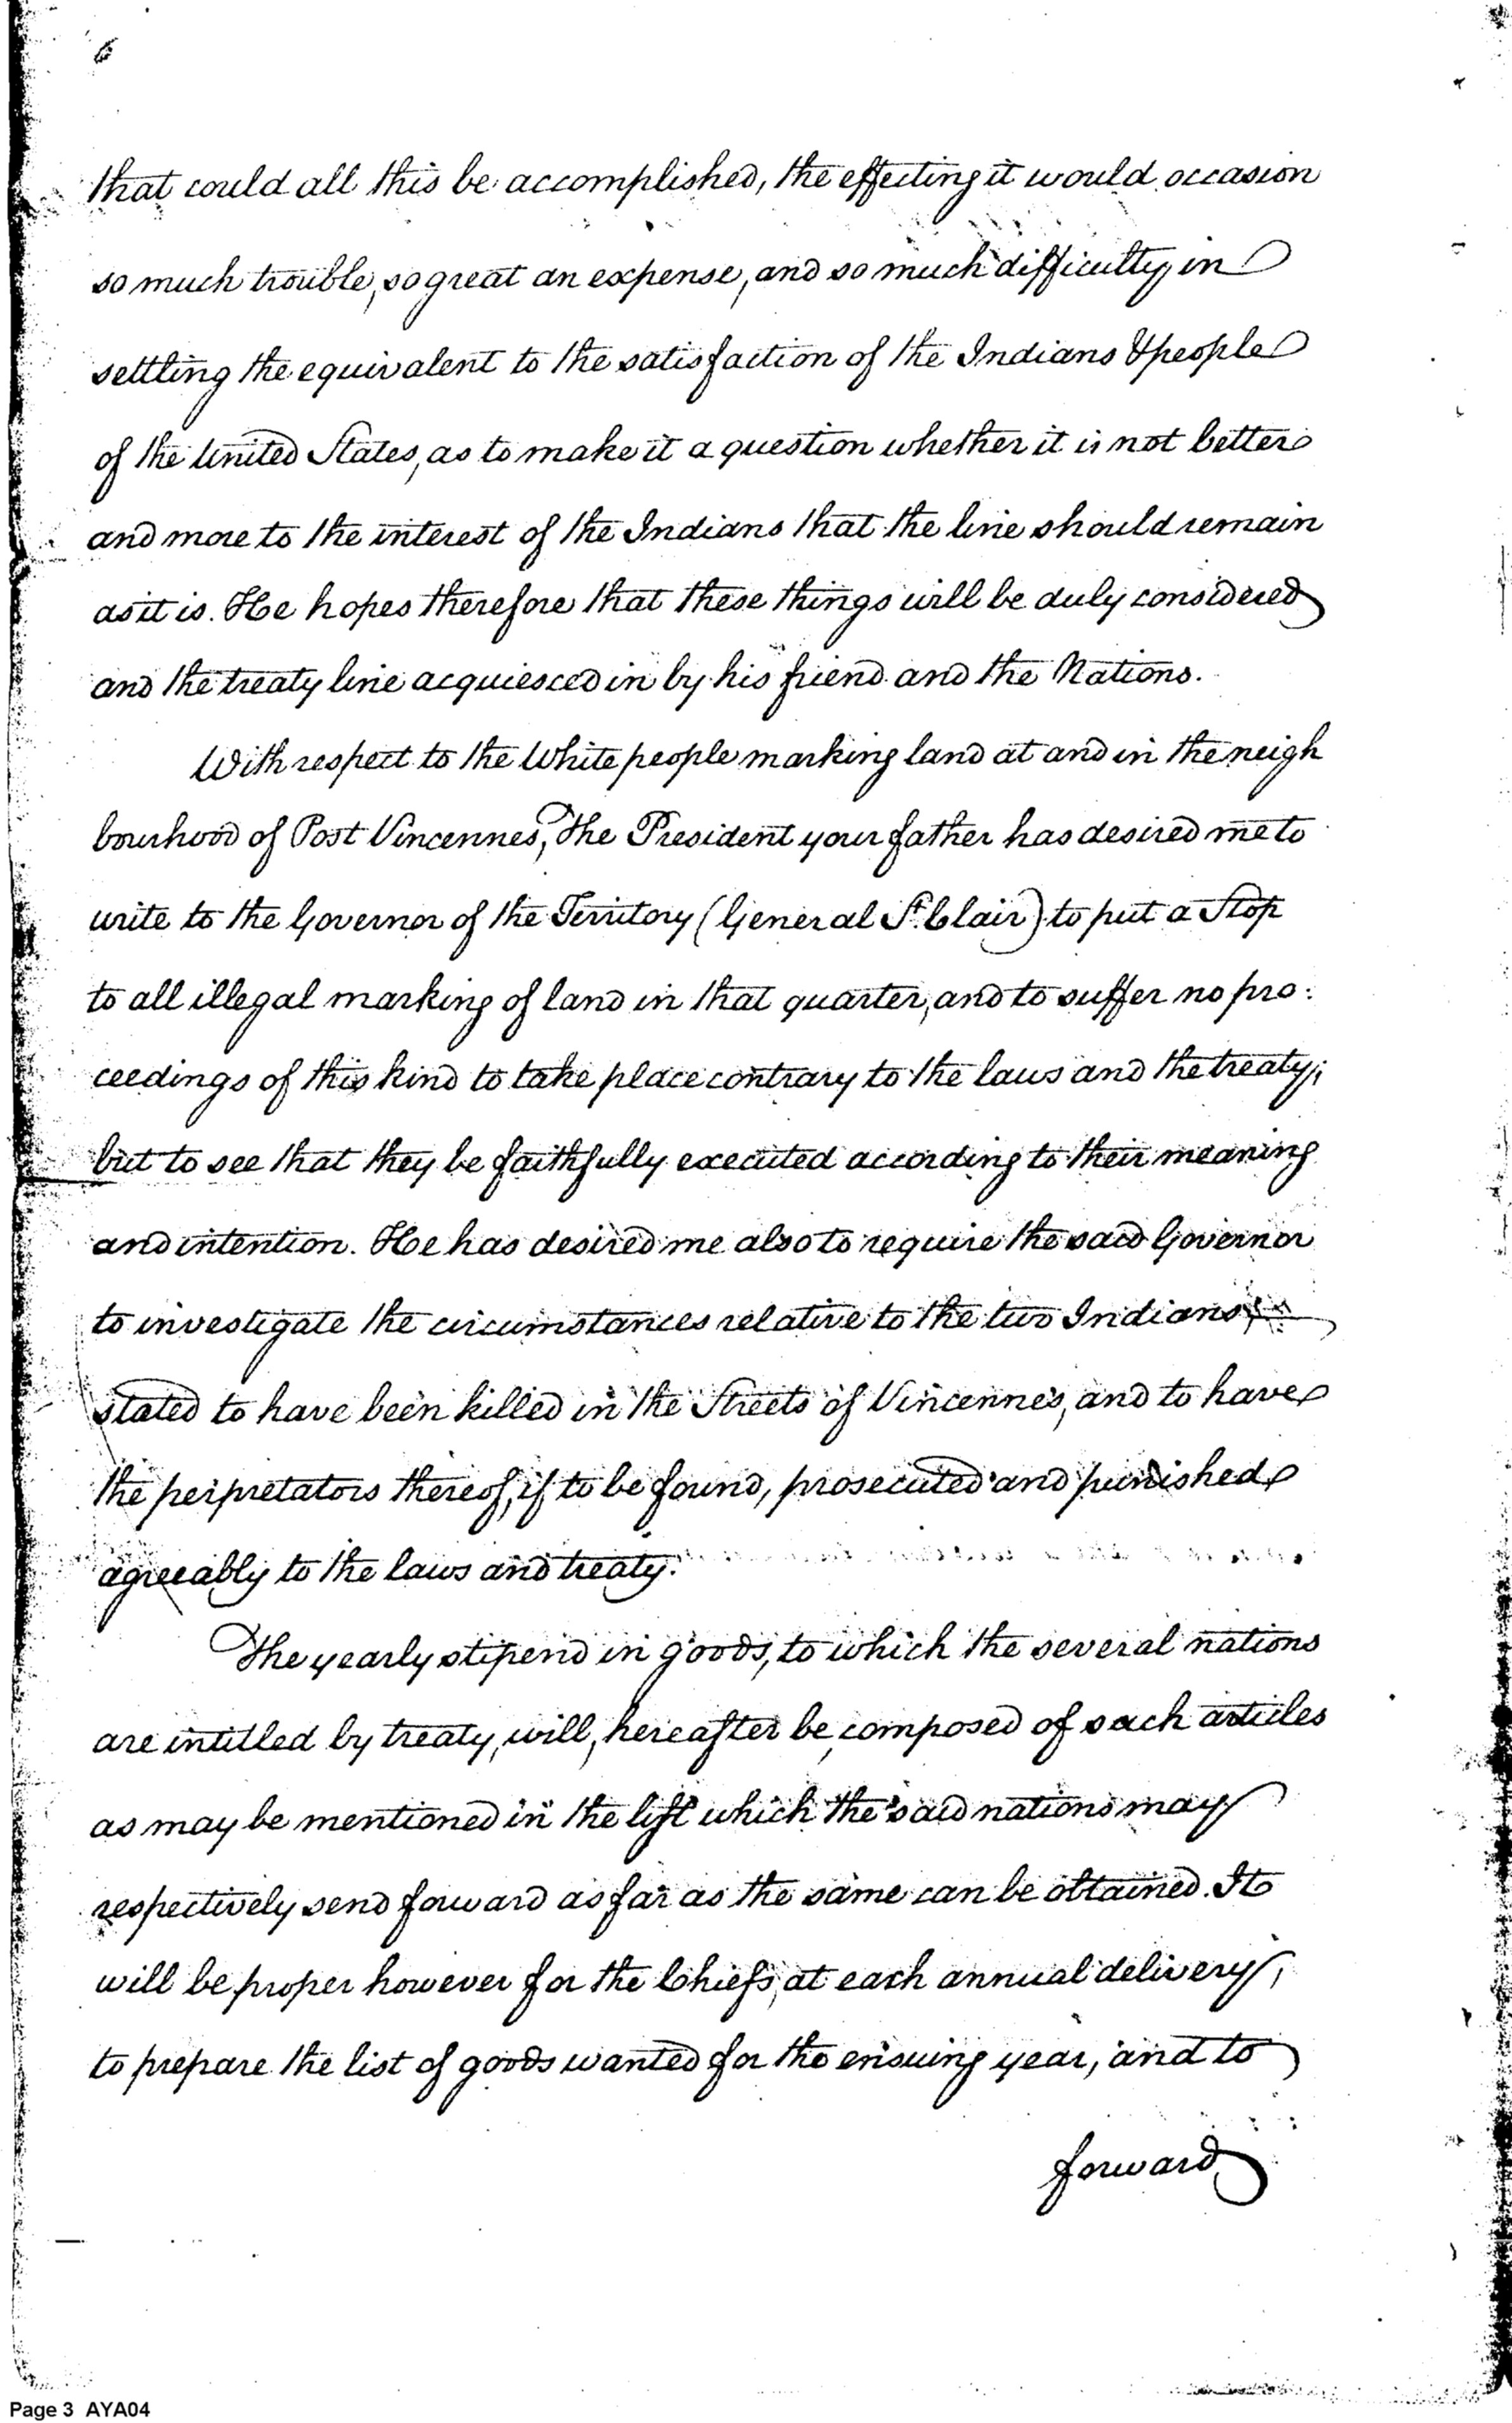 6
that could all this be accomplished, the effecting it would occasion
so much trouble, so great an expense, and so much difficulty in
settling the equivalent to the satisfaction of the Indians & people
of the United States, as to make it a question whether it is not better
and more to the interest of the Indians that the line should remain
as it is. He hopes therefore that these things will be duly considered
and the treaty line acquiesced in by his friend and the Nations.
With respect to the White people marking land at and in the neigh
bourhood of Post Vincennes, The President your father has desired me to
write to the Governor of the Territory (General St. Clair) to put a Stop
to all illegal marking of land in that quarter, and to suffer no pro:
ceedings of this kind to take place contrary to the laws and the treaty;
but to see that they be faithfully executed according to their meaning
and intention. He has desired me also to require the said Governor
to investigate the circumstances relative to the two Indians
stated to have been killed in the Streets of Vincennes, and to have
the perpretators thereof, if to be found, prosecuted and punished
agreeably to the laws and treaty.
The yearly stipend in goods, to which the several nations
are intitled by treaty, will, hereafter be, composed of such articles
as may be mentioned in the list which the said nations may
respectively send forward as far as the same can be obtained. It
will be proper however for the Chiefs, at each annual delivery,
to prepare the list of goods wanted for the ensuing year, and to
forward
Page 3 AYA04